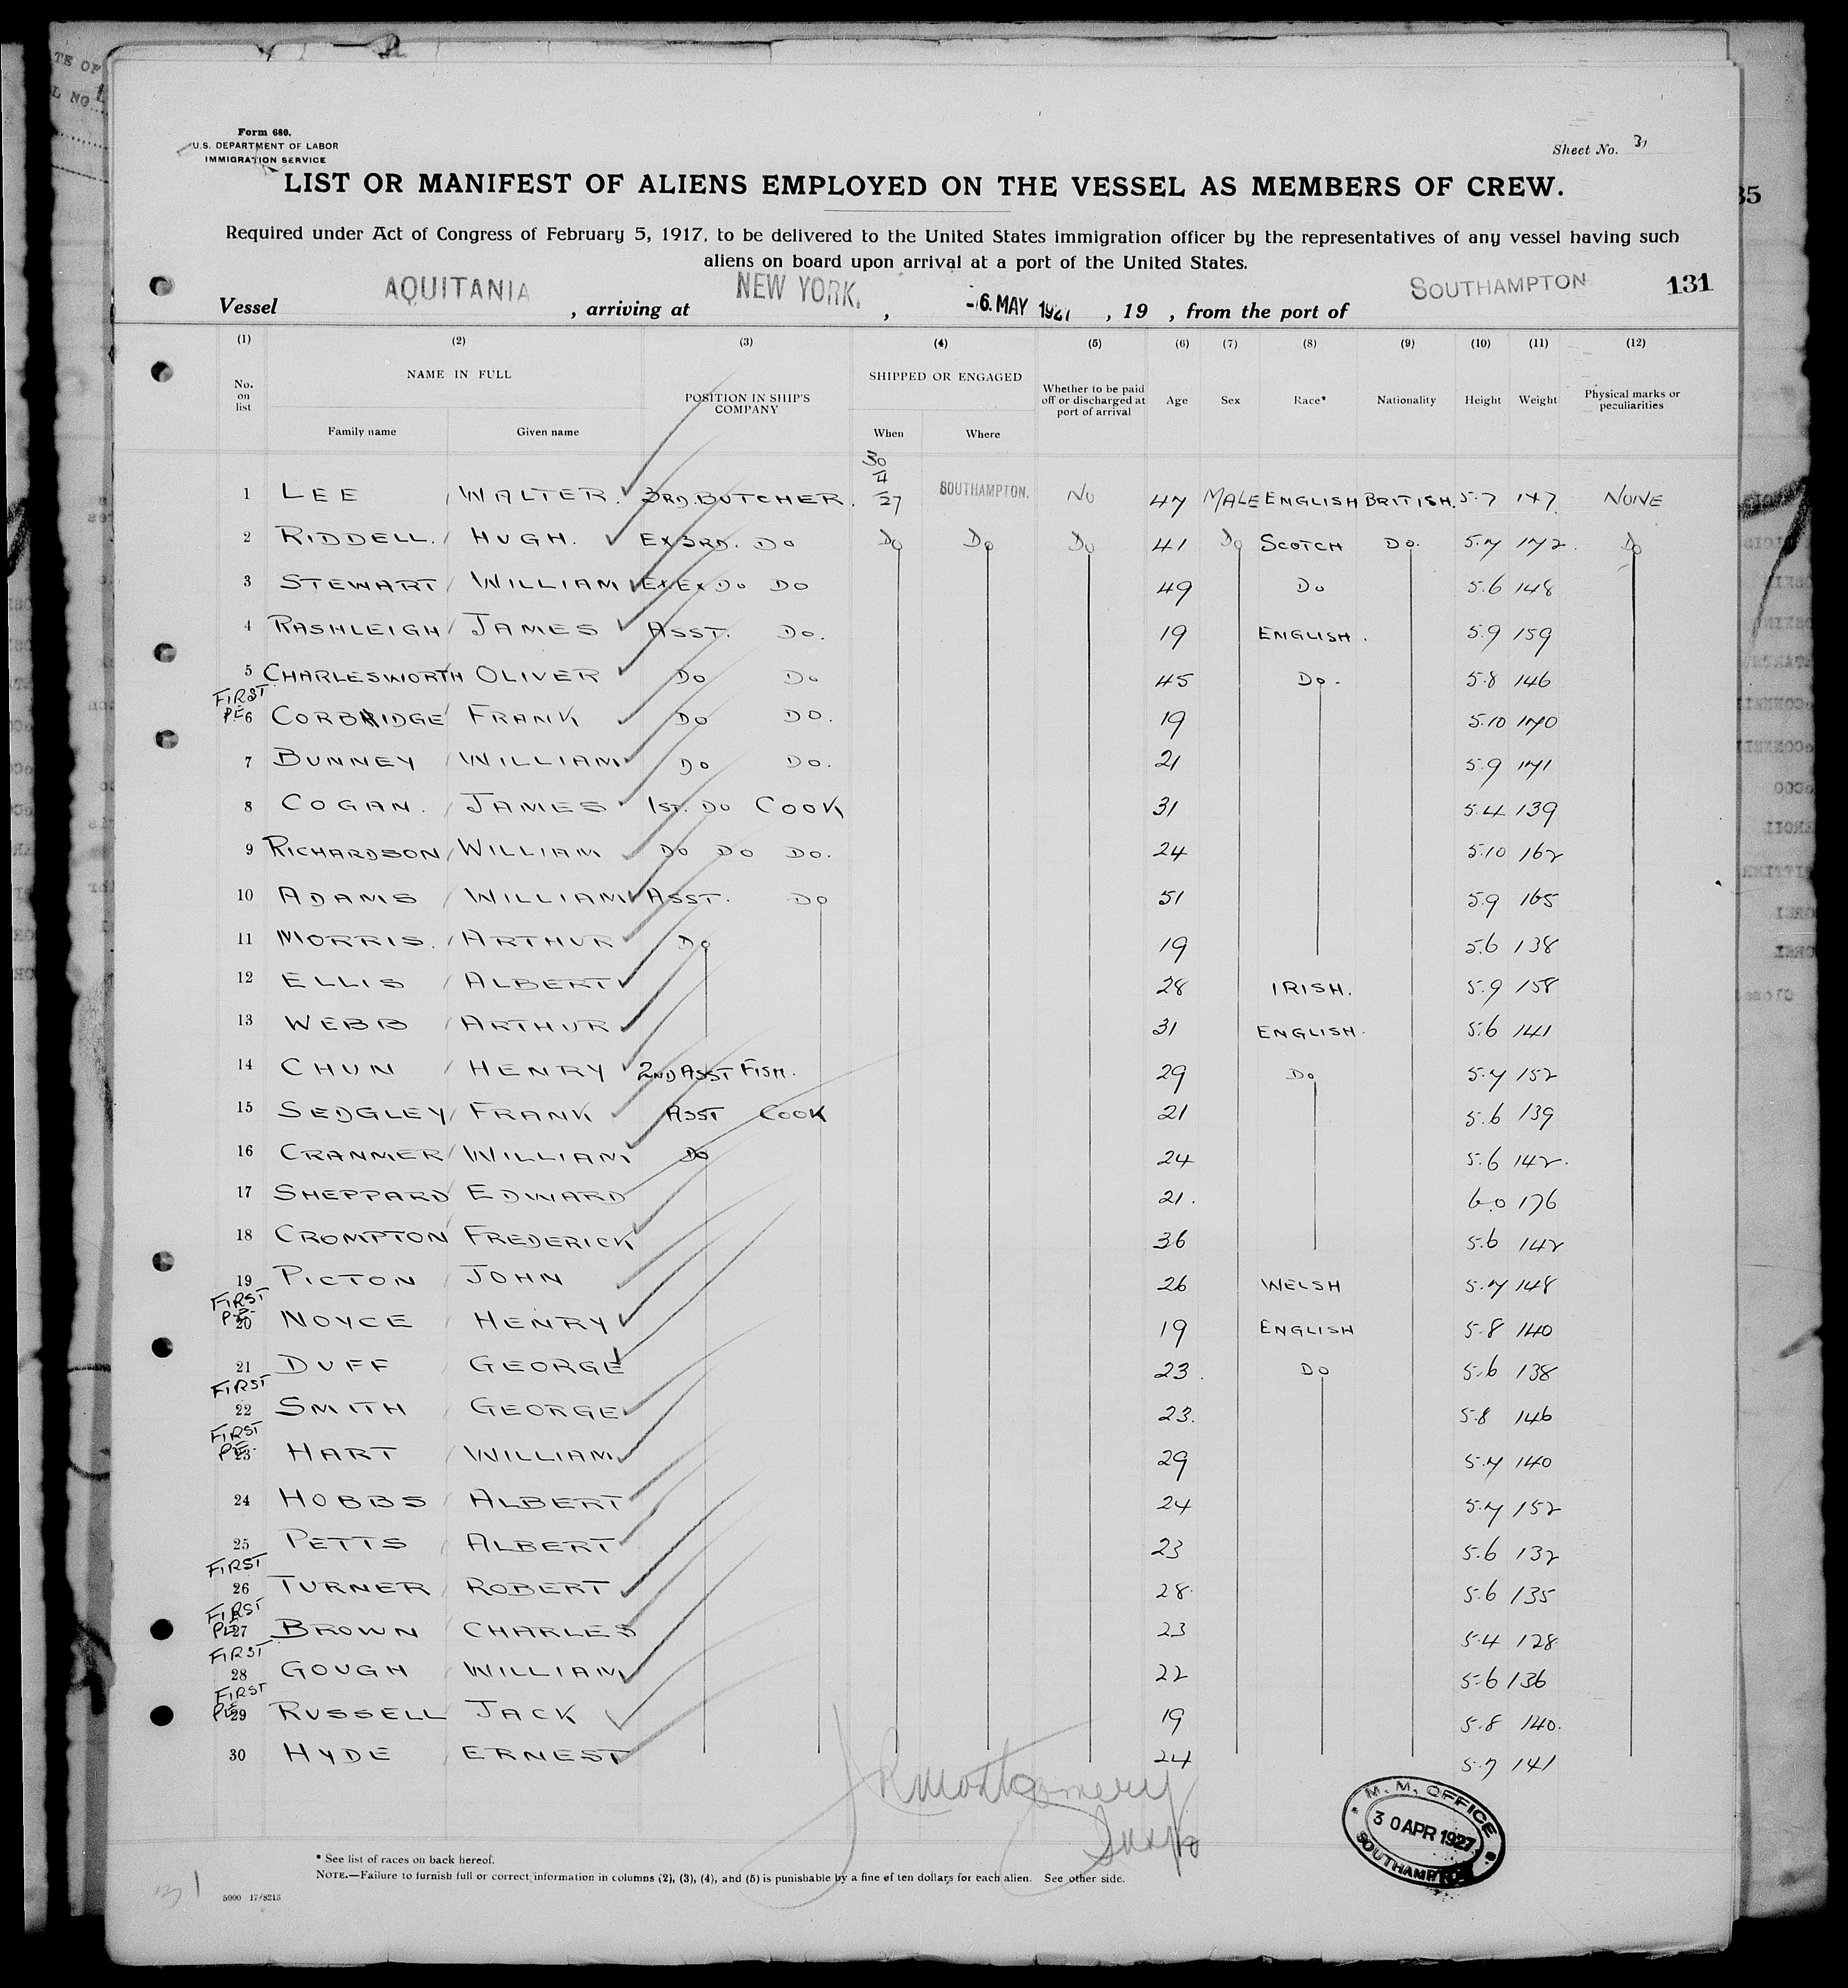 Form 680.
U.S. DEPARTMENT OF LABOR
IMMIGRATION SERVICE
Sheet No. 31
LIST OR MANIFEST OF ALIENS EMPLOYED ON THE VESSEL AS MEMBERS OF CREW.
Required under Act of Congress of February 5, 1917, to be delivered to the United States immigration officer by the representatives of any vessel having such
aliens on board upon arrival at a port of the United States.
131
Vessel AQUITANIA , arriving at NEW YORK. , -6. MAY 1927 , 19 , from the port of SOUTHAMPTON
(1) (2) (3) (4) (5) (6) (7) (8) (9) (10) (11) (12)
No. on list NAME IN FULL Family name Given name POSITION IN SHIP'S COMPANY SHIPPED OR ENGAGED When Where Whether to be paid off or discharged at port of arrival Age Sex Race* Nationality Height Weight Physical marks or peculiarities
1 LEE WALTER. 3RD. BUTCHER. 30/4/27 SOUTHAMPTON. NO 47 MALE ENGLISH BRITISH. 5.7 147 NONE
2 RIDDELL. HUGH. EX 3RD. DO DO DO DO 41 DO SCOTCH DO. 5.7 172. DO
3 STEWART WILLIAM EX EX DO DO 49 DO 5.6 148
4 RASHLEIGH JAMES ASST. DO. 19 ENGLISH. 5.9 159
5 CHARLESWORTH OLIVER DO DO 45 DO. 5.8 146
FIRST
P.E 6 CORBRIDGE FRANK DO DO. 19 5.10 170
7 BUNNEY WILLIAM DO DO. 21 5.9 171
8 COGAN. JAMES 1ST. DO COOK 31 5.4 139
9 RICHARDSON WILLIAM DO DO DO. 24 5.10 162
10 ADAMS WILLIAM ASST. DO 51 5.9 165
11 MORRIS. ARTHUR DO 19 5.6 138
12 ELLIS ALBERT 28 IRISH. 5.9 158
13 WEBB ARTHUR 31 ENGLISH. 5.6 141
14 CHUN HENRY 2ND ASST FISH. 29 DO 5.7 152
15 SEDGLEY FRANK ASST COOK 21 5.6 139
16 CRANMER WILLIAM DO 24 5.6 142.
17 SHEPPARD EDWARD 21. 6.0 176
18 CROMPTON FREDERICK 36 5.6 142
19 PICTON JOHN 26 WELSH 5.7 148
FIRST
P.E. 20 NOYCE HENRY 19 ENGLISH 5.8 140
21 DUFF GEORGE 23. DO 5.6 138
FIRST
22 SMITH GEORGE 23. 5.8 146
FIRST
P.E. 23 HART WILLIAM 29 5.7 140
24 HOBBS ALBERT 24 5.7 152
25 PETTS ALBERT 23 5.6 132
FIRST
26 TURNER ROBERT 28. 5.6 135
FIRST
P.E 27 BROWN CHARLES 23 5.4 128
FIRST
28 GOUGH WILLIAM 22 5.6 136
FIRST
P.E 29 RUSSELL JACK 19 5.8 140.
30 HYDE ERNEST 24 5.7 141
Montgomery
M. M. OFFICE
30 APR 1927
SOUTHAMPTON
* See list of races on back hereof.
NOTE.—Failure to furnish full or correct information in columns (2), (3), (4), and (5) is punishable by a fine of ten dollars for each alien. See other side.
31
5000 17/8213